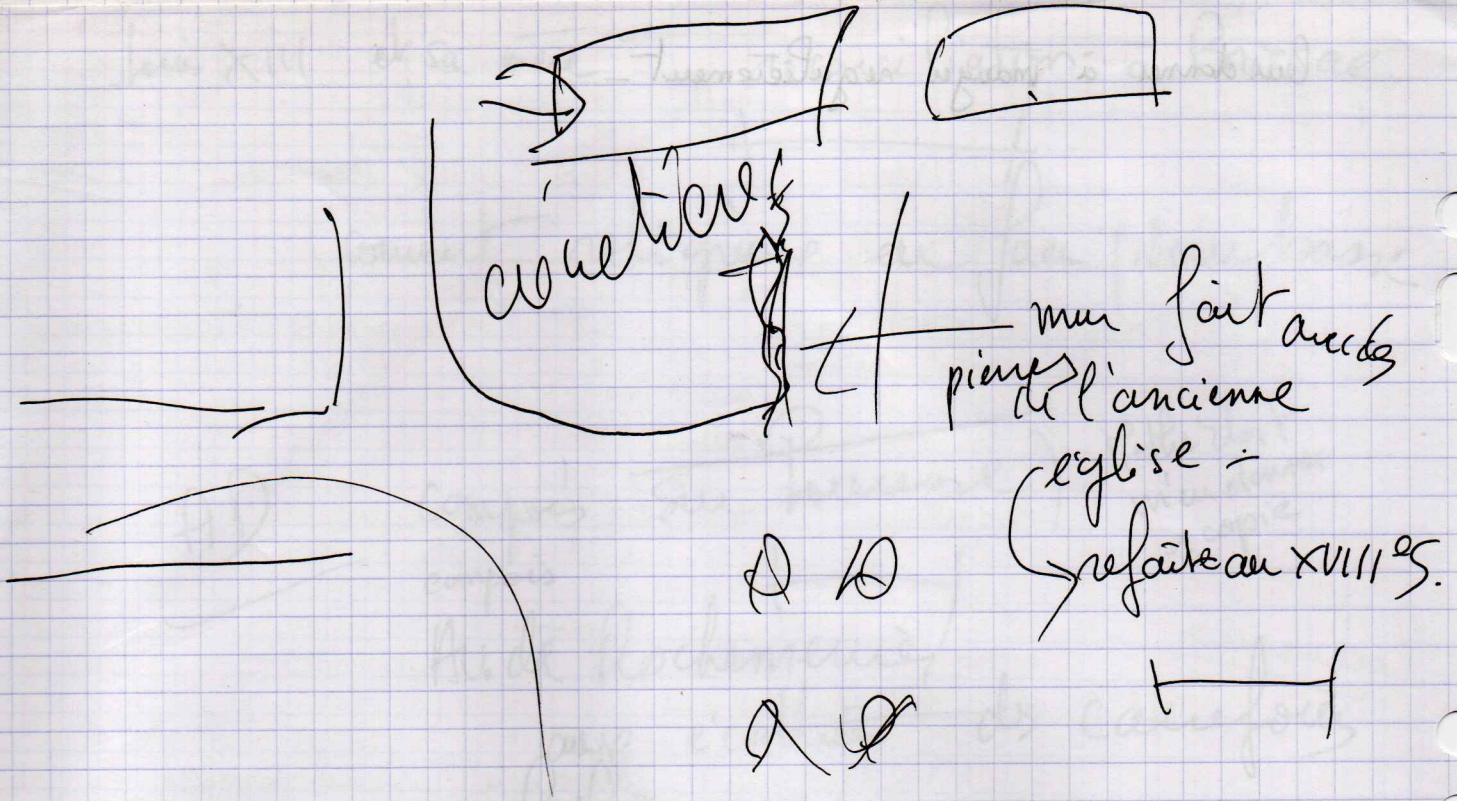 cimetière
mur fait avec des
pierres
de l'ancienne
église -
refaite au XVIIIe s.